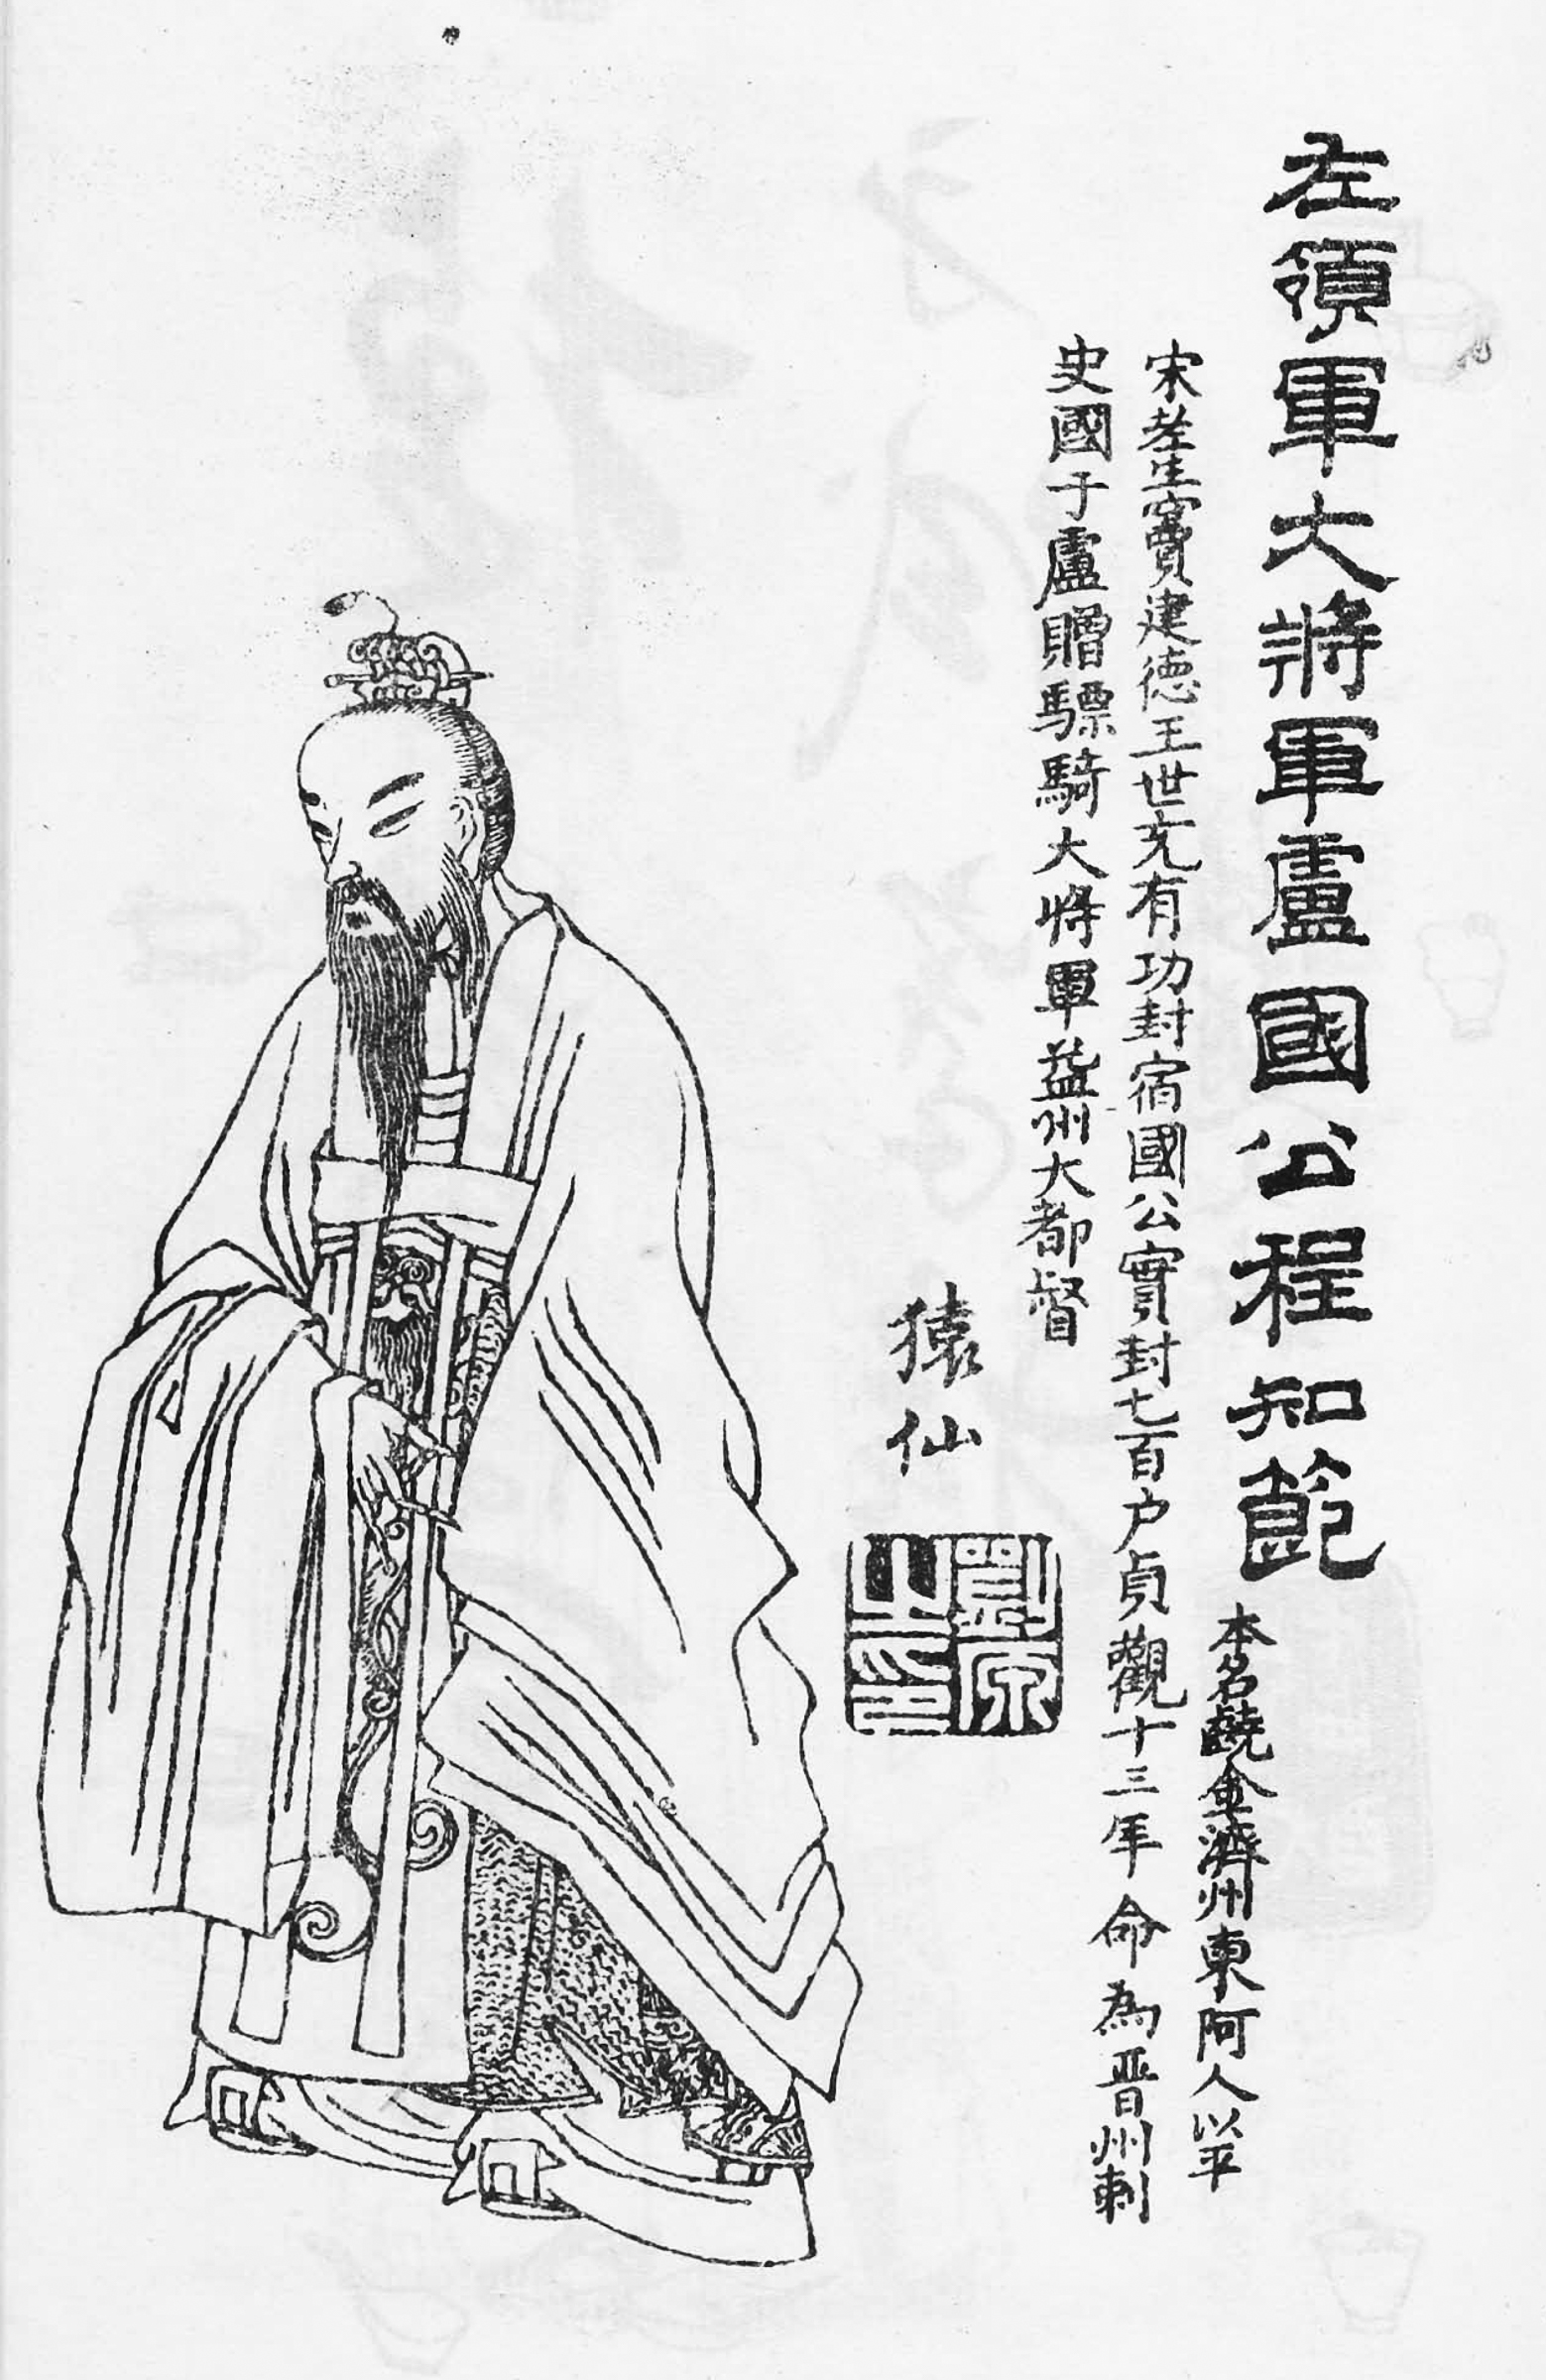 左領軍大將軍盧國公程知節
本名齩金濟州東阿人以平
宋老生竇建德王世充有功封宿國公實封七百户貞觀十三年命為晋州刺
史國于盧贈驃騎大將軍益州大都督
猿仙
劉源之印